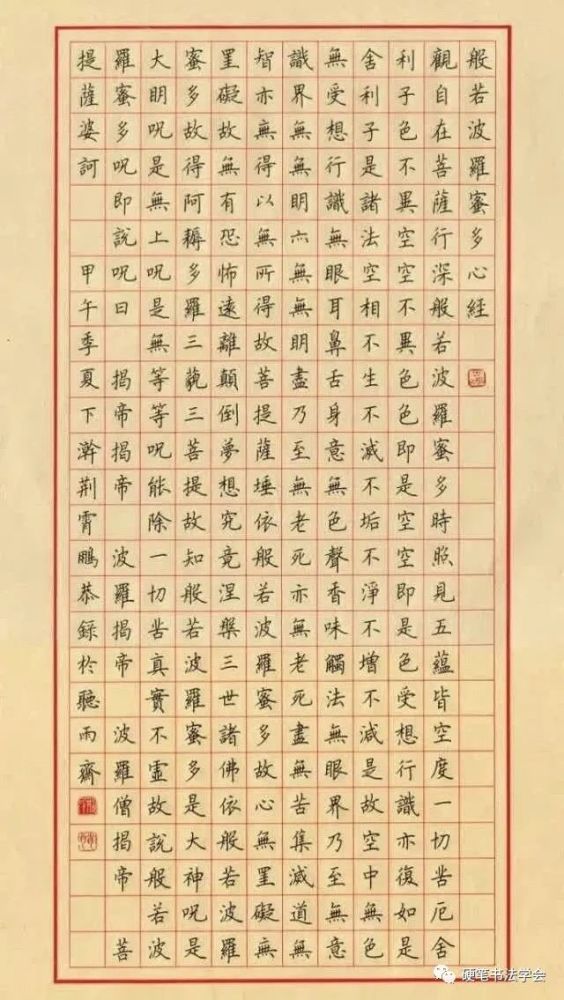 般若波羅蜜多心經
觀自在菩薩行深般若波羅蜜多時照見五蘊皆空度一切苦厄舍
利子色不異空空不異色色即是空空即是色受想行識亦復如是
舍利子是諸法空相不生不滅不垢不淨不增不減是故空中無色
無受想行識無眼耳鼻舌身意無色聲香味觸法無眼界乃至無意
識界無無明亦無無明盡乃至無老死亦無老死盡無苦集滅道無
智亦無得以無所得故菩提薩埵依般若波羅蜜多故心無罣礙無
罣礙故無有恐怖遠離顛倒夢想究竟涅槃三世諸佛依般若波羅
蜜多故得阿耨多羅三藐三菩提故知般若波羅蜜多是大神呪是
大明呪是無上呪是無等等呪能除一切苦真實不虛故說般若波
羅蜜多呪即說呪曰 揭帝揭帝 波羅揭帝 波羅僧揭帝 菩
提薩婆訶 甲午季夏下澣荊霄鵬恭錄於聽雨齋
硬笔书法学会